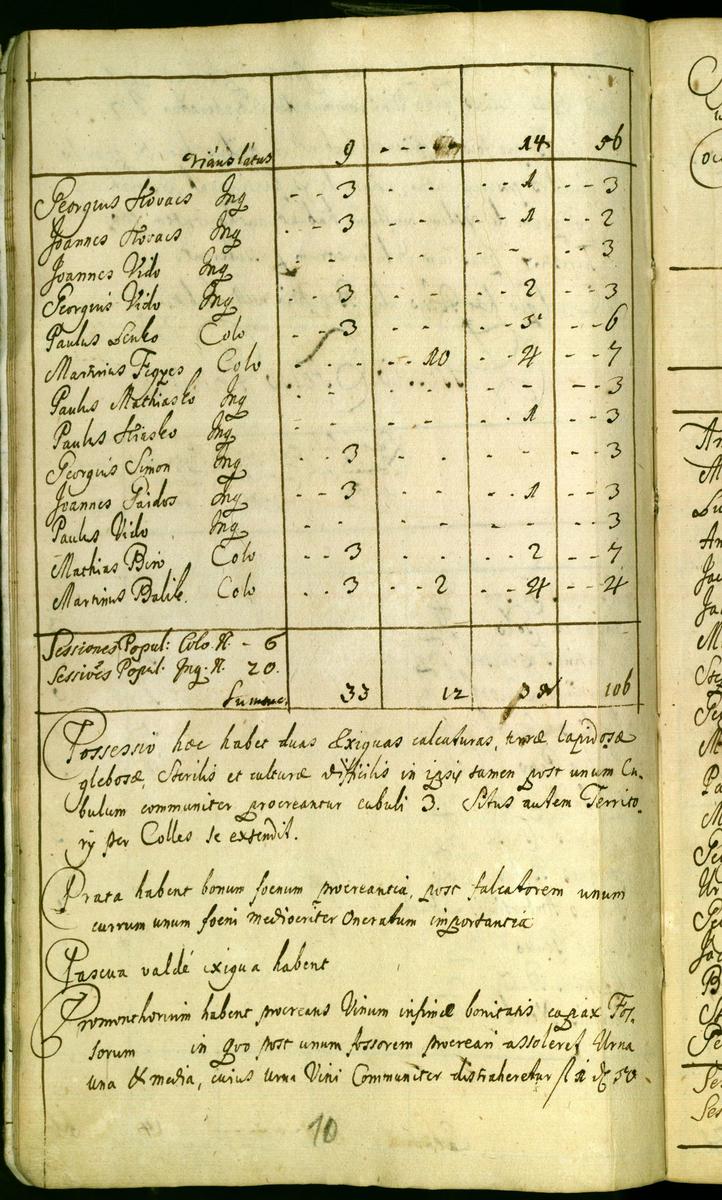 Translatus 9 - - - 14 56
Georgius Kovacs Inq - - 3 - - - - 1 - - 3
Joannes Kovacs Inq - - 3 - - - - 1 - - 2
Joannes Vido Inq - - - - - - 3
Georgius Vido Inq - - 3 - - - - 2 - - 3
Paulus Lenko Colo - - 3 - - - - 5 - - 6
Martinus Fegyes Colo - - - - 10 - - 4 - - 7
Paulus Mathiasko Inq - - - - - - 3
Paulus Hiasko Inq - - - - 1 - - 3
Georgius Simon Inq - - 3 - - - - - - 3
Joannes Gaidos Inq - - 3 - - - - 1 - - 3
Paulus Vido Inq - - - - - - 3
Mathias Biro Colo - - 3 - - - - 2 - - 7
Martinus Balik Colo - - 3 - - 2 - - 4 - - 4
Sessiones Popul: Colo. N. - 6
Sessiones Popul: Inq. N. 20.
Summa. 33 12 106
Possessio haec habet duas Exiguas calcaturas, terrae lapidosae
glebosae, Sterilis et culturae difficilis in ipsis tamen post unum Cu-
bulum communiter procreantur cubuli 3. Situs autem Territo-
rÿ per Colles se extendit.
Prata habent bonum foenum procreantia, post falcatorem unum
currum unum foeni mediocriter Oneratum importantia
Pascua valdé exigua habent
Promonthorium habent procreans Vinum infimae bonitatis capax Fos-
sorum in quo post unum fossorem procreari assoleret Urna
una & media, cuius Urna Vini Communiter distraheretur fl 1 d 50
10